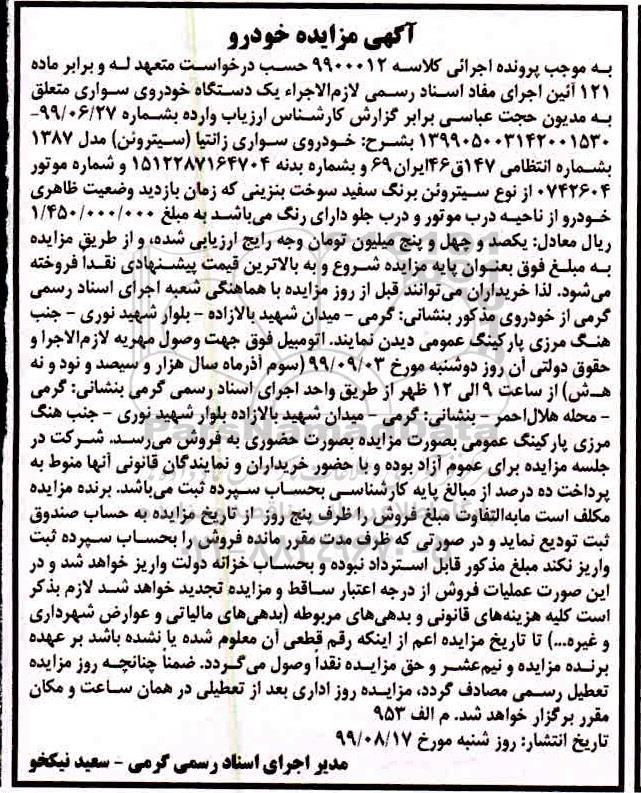 آگهی مزایده خودرو
به موجب پرونده اجرائی کلاسه ۹۹۰۰۰۱۲ حسب درخواست متعهد له و برابر ماده
۱۲۱ آئین اجرای مفاد اسناد رسمی لازم‌الاجراء یک دستگاه خودروی سواری متعلق
به مدیون حجت عباسی برابر گزارش کارشناس ارزیاب وارده بشماره ۹۹/۰۶/۲۷-
۱۳۹۹۰۵۰۰۳۱۴۲۰۰۱۵۳۰ بشرح: خودروی سواری زانتیا (سیتروئن) مدل ۱۳۸۷
بشماره انتظامی ۱۴۷ق۴۶ایران۶۹ و بشماره بدنه ۱۵۱۲۲۸۷۱۶۴۷۰۴ و شماره موتور
۰۷۴۲۶۰۴ از نوع سیتروئن برنگ سفید سوخت بنزینی که زمان بازدید وضعیت ظاهری
خودرو از ناحیه درب موتور و درب جلو دارای رنگ می‌باشد به مبلغ ۱/۴۵۰/۰۰۰/۰۰۰
ریال معادل: یکصد و چهل و پنج میلیون تومان وجه رایج ارزیابی شده، و از طریق مزایده
به مبلغ فوق بعنوان پایه مزایده شروع و به بالاترین قیمت پیشنهادی نقداً فروخته
می‌شود. لذا خریداران می‌توانند قبل از روز مزایده با هماهنگی شعبه اجرای اسناد رسمی
گرمی از خودروی مذکور بنشانی: گرمی – میدان شهید بالازاده – بلوار شهید نوری – جنب
هنگ مرزی پارکینگ عمومی دیدن نمایند. اتومبیل فوق جهت وصول مهریه لازم‌الاجرا و
حقوق دولتی آن روز دوشنبه مورخ ۹۹/۰۹/۰۳ (سوم آذرماه سال هزار و سیصد و نود و نه
هـش) از ساعت ۹ الی ۱۲ ظهر از طریق واحد اجرای اسناد رسمی گرمی بنشانی: گرمی
– محله هلال‌احمر – بنشانی: گرمی – میدان شهید بالازاده بلوار شهید نوری – جنب هنگ
مرزی پارکینگ عمومی بصورت مزایده بصورت حضوری به فروش می‌رسد. شرکت در
جلسه مزایده برای عموم آزاد بوده و با حضور خریداران و نمایندگان قانونی آنها منوط به
پرداخت ده درصد از مبالغ پایه کارشناسی بحساب سپرده ثبت می‌باشد. برنده مزایده
مکلف است مابه‌التفاوت مبلغ فروش را ظرف پنج روز از تاریخ مزایده به حساب صندوق
ثبت تودیع نماید و در صورتی که ظرف مدت مقرر مانده فروش را بحساب سپرده ثبت
واریز نکند مبلغ مذکور قابل استرداد نبوده و بحساب خزانه دولت واریز خواهد شد و در
این صورت عملیات فروش از درجه اعتبار ساقط و مزایده تجدید خواهد شد لازم بذکر
است کلیه هزینه‌های قانونی و بدهی‌های مربوطه (بدهی‌های مالیاتی و عوارض شهرداری
و غیره...) تا تاریخ مزایده اعم از اینکه رقم قطعی آن معلوم شده یا نشده باشد بر عهده
برنده مزایده و نیم‌عشر و حق مزایده نقداً وصول می‌گردد. ضمناً چنانچه روز مزایده
تعطیل رسمی مصادف گردد، مزایده روز اداری بعد از تعطیلی در همان ساعت و مکان
مقرر برگزار خواهد شد. م الف ۹۵۳
تاریخ انتشار: روز شنبه مورخ ۹۹/۰۸/۱۷
مدیر اجرای اسناد رسمی گرمی – سعید نیکخو